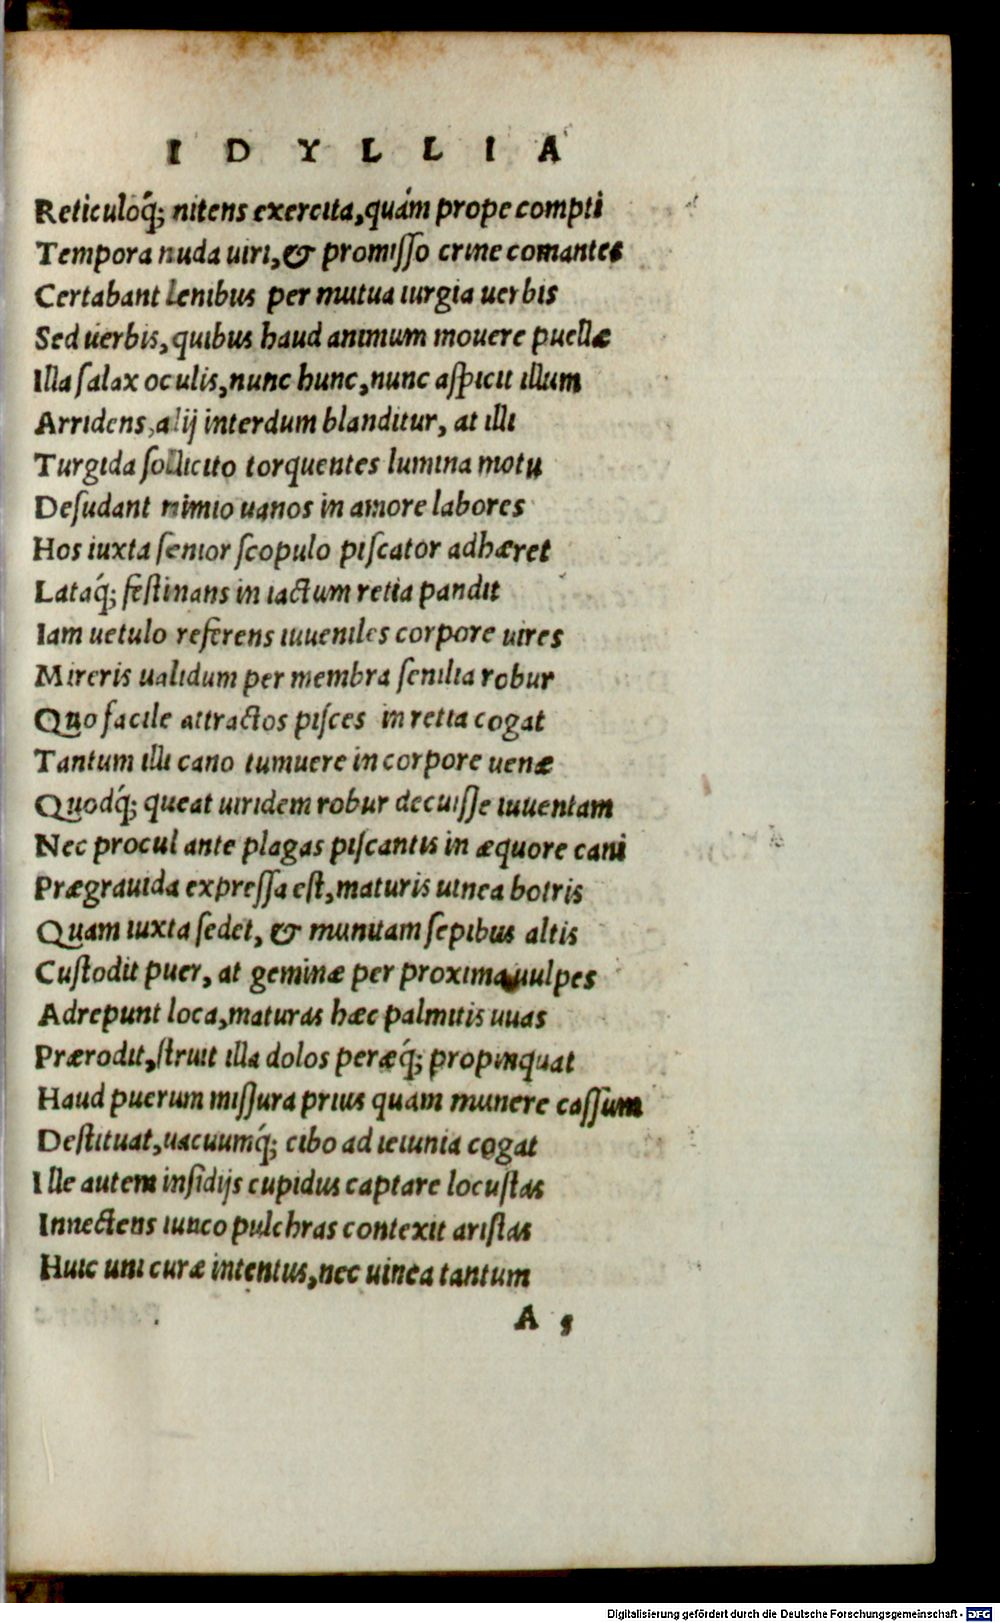 I D Y L L I A
Reticuloq́; nitens exercita,quám prope compti
Tempora nuda uiri,& promisso crine comantes
Certabant lenibus per mutua iurgia uerbis
Sed uerbis,quibus haud animum mouere puellæ
Illa salax oculis,nunc hunc,nunc aspicit illum
Arridens,alij interdum blanditur, at illi
Turgida sollicito torquentes lumina motu
Desudant nimio uanos in amore labores
Hos iuxta senior scopulo piscator adhæret
Lataq́; festinans in iactum retia pandit
Iam uetulo referens iuueniles corpore uires
Mireris ualidum per membra senilia robur
Quo facile attractos pisces in retia cogat
Tantum illi cano tumuere in corpore uenæ
Quodq́; queat uiridem robur decuisse iuuentam
Nec procul ante plagas piscantis in æquore cani
Prægrauida expressa est,maturis uinea botris
Quam iuxta sedet, & munitam sepibus altis
Custodit puer, at geminæ per proxima uulpes
Adrepunt loca,maturas hæc palmitis uuas
Prærodit,struit illa dolos peræq́; propinquat
Haud puerum missura prius quam munere cassum
Destituat,uacuumq́; cibo ad ieiunia cogat
Ille autem insidijs cupidus captare locustas
Innectens iunco pulchras contexit aristas
Huic uni curæ intentus,nec uinea tantum
A 5
Digitalisierung gefördert durch die Deutsche Forschungsgemeinschaft - DFG